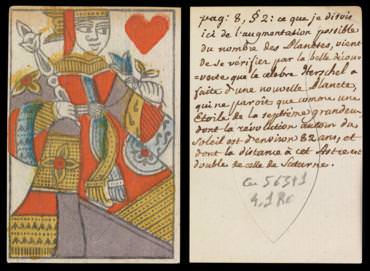 pag: 8, § 2: ce que je disois
ici de l'augmentation possible
du nombre des Planetes, vient
de se vérifier par la belle décou=
verte que le célebre Herschel a
faite d'une nouvelle Planete,
qui ne paroit que comme une
Etoile de la septième grandeur
dont la révolution autour du
Soleil est d'environ 82 ans, et
dont la distance à cet Astre est
double de celle de Saturne.
56341